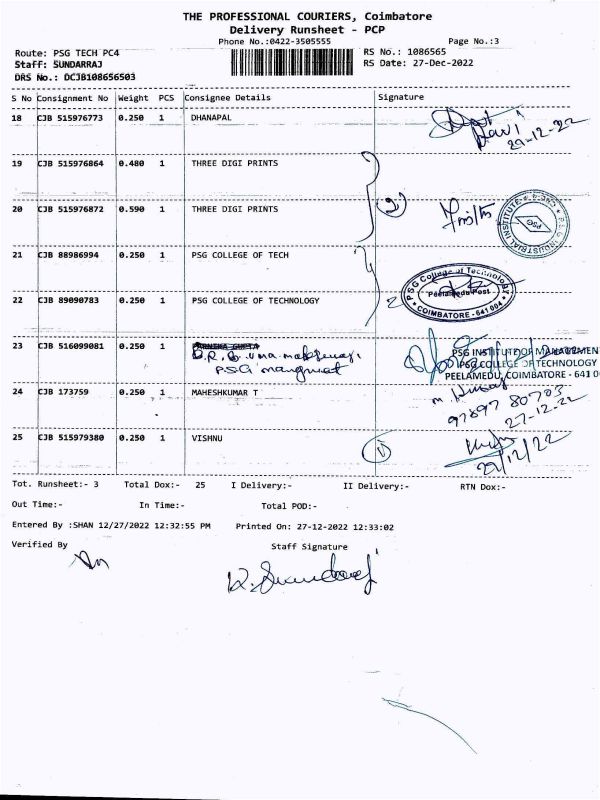 THE PROFESSIONAL COURIERS, Coimbatore
Delivery Runsheet - PCP
Phone No.:0422-3505555 Page No.:3
Route: PSG TECH PC4 RS No.: 1086565
Staff: SUNDARRAJ RS Date: 27-Dec-2022
DRS No.: DCJB108656503
S No Consignment No Weight PCS Consignee Details Signature
18 CJB 515976773 0.250 1 DHANAPAL
Ravi
29-12-22
19 CJB 515976864 0.480 1 THREE DIGI PRINTS
2
20 CJB 515976872 0.590 1 THREE DIGI PRINTS
PSG INDUSTRIAL INSTITUTE
PSG
21 CJB 88986994 0.250 1 PSG COLLEGE OF TECH
PSG College of Technology
Peelamedu Post
COIMBATORE - 641 004
22 CJB 89090783 0.250 1 PSG COLLEGE OF TECHNOLOGY 2
23 CJB 516099081 0.250 1
PSG INSTITUTE OF MANAGEMEN
PSG COLLEGE OF TECHNOLOGY
PEELAMEDU, COIMBATORE - 641 0
24 CJB 173759 0.250 1 MAHESHKUMAR T
97897 80703
27-12-22
25 CJB 515979380 0.250 1 VISHNU 1
27/12/22
Tot. Runsheet:- 3 Total Dox:- 25 I Delivery:- II Delivery:- RTN Dox:-
Out Time:- In Time:- Total POD:-
Entered By :SHAN 12/27/2022 12:32:55 PM Printed On: 27-12-2022 12:33:02
Verified By Staff Signature